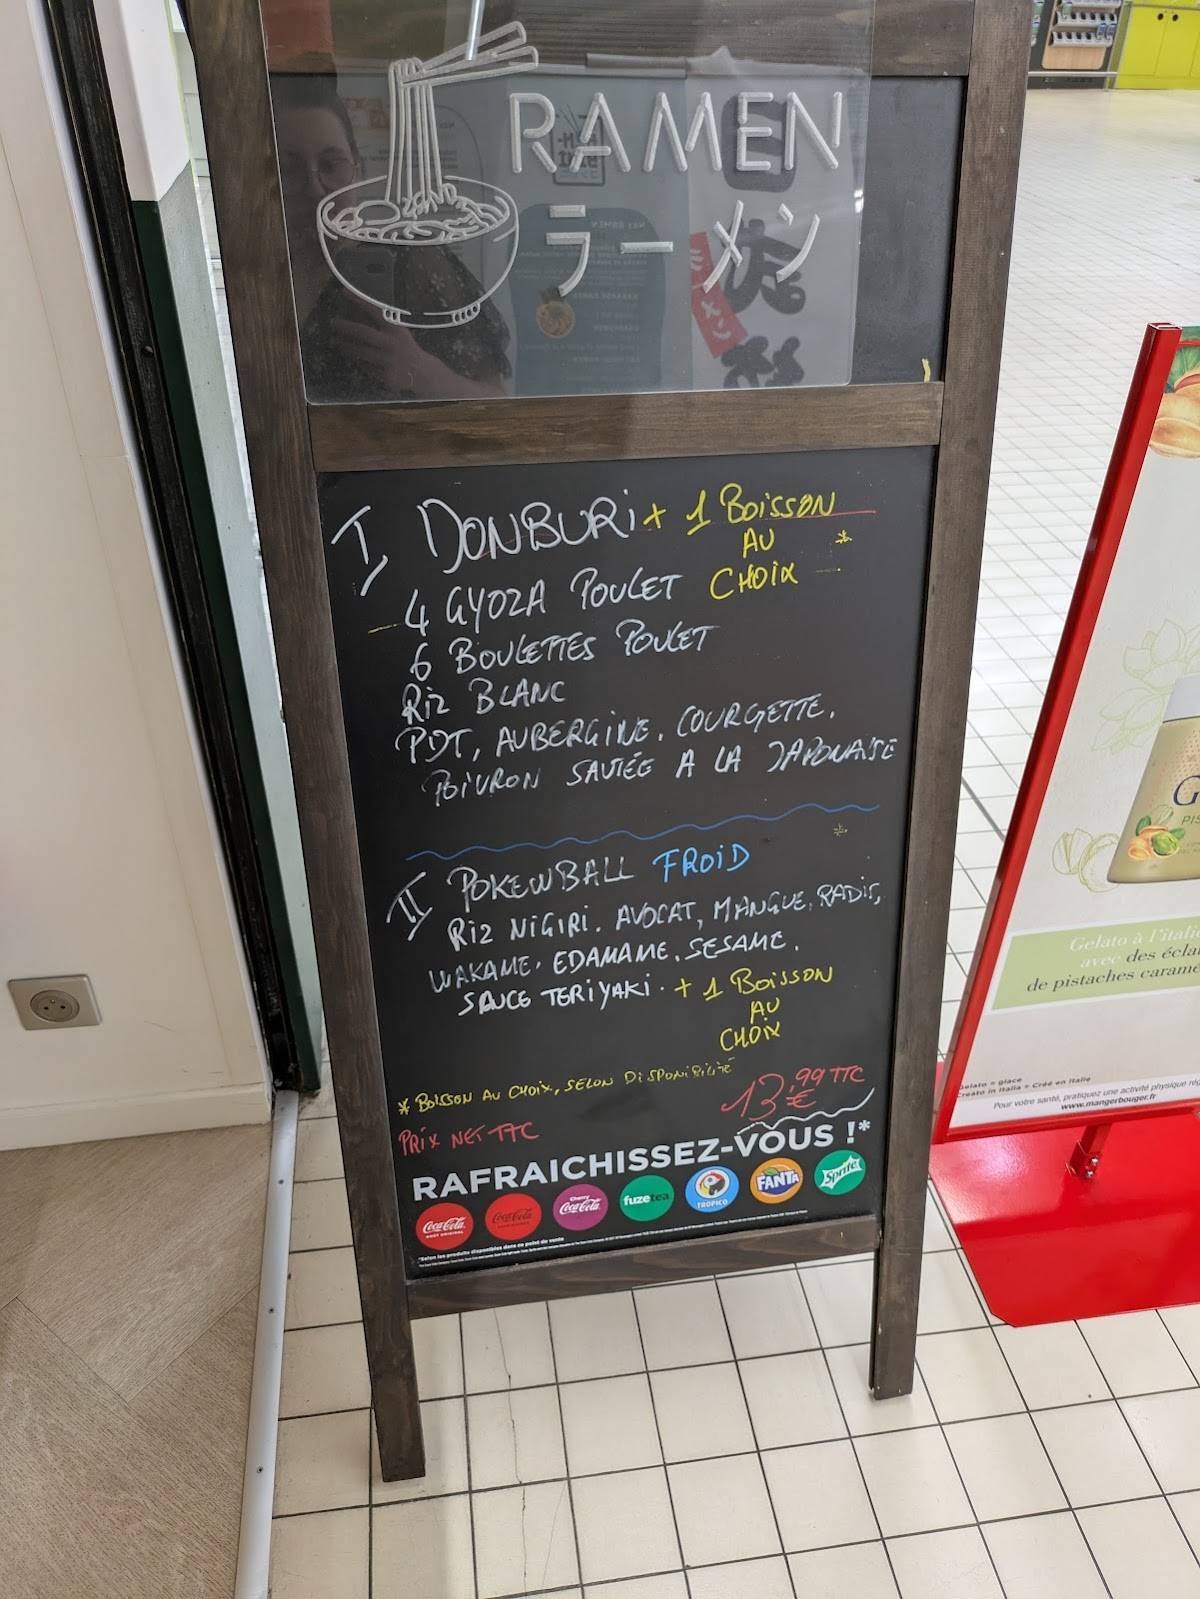 RAMEN
ラーメン
I DONBURI + 1 BOISSON
AU *
CHOIX
4 GYOZA POULET
6 BOULETTES POULET
RIZ BLANC
PDT, AUBERGINE, COURGETTE,
POIVRON SAUTÉE A LA JAPONAISE
*
II POKEWBALL FROID
RIZ NIGIRI, AVOCAT, MANGUE, RADIS,
WAKAME, EDAMAME, SESAME,
SAUCE TERIYAKI. + 1 BOISSON
AU
CHOIX
* BOISSON AU CHOIX, SELON DISPONIBILITÉ
13,99 TTC
€
PRIX NET TTC
RAFRAICHISSEZ-VOUS !*
Coca-Cola
GOÛT ORIGINAL
Coca-Cola
Cherry
Coca-Cola
fuzetea
TROPICO
FANTA
Sprite
*Selon les produits disponibles dans ce point de vente
G
PIS
Gelato à l'itali
avec des écla
de pistaches carame
Gelato = glace
Creato in Italia = Créé en Italie
Pour votre santé, pratiquez une activité physique rég
www.mangerbouger.fr